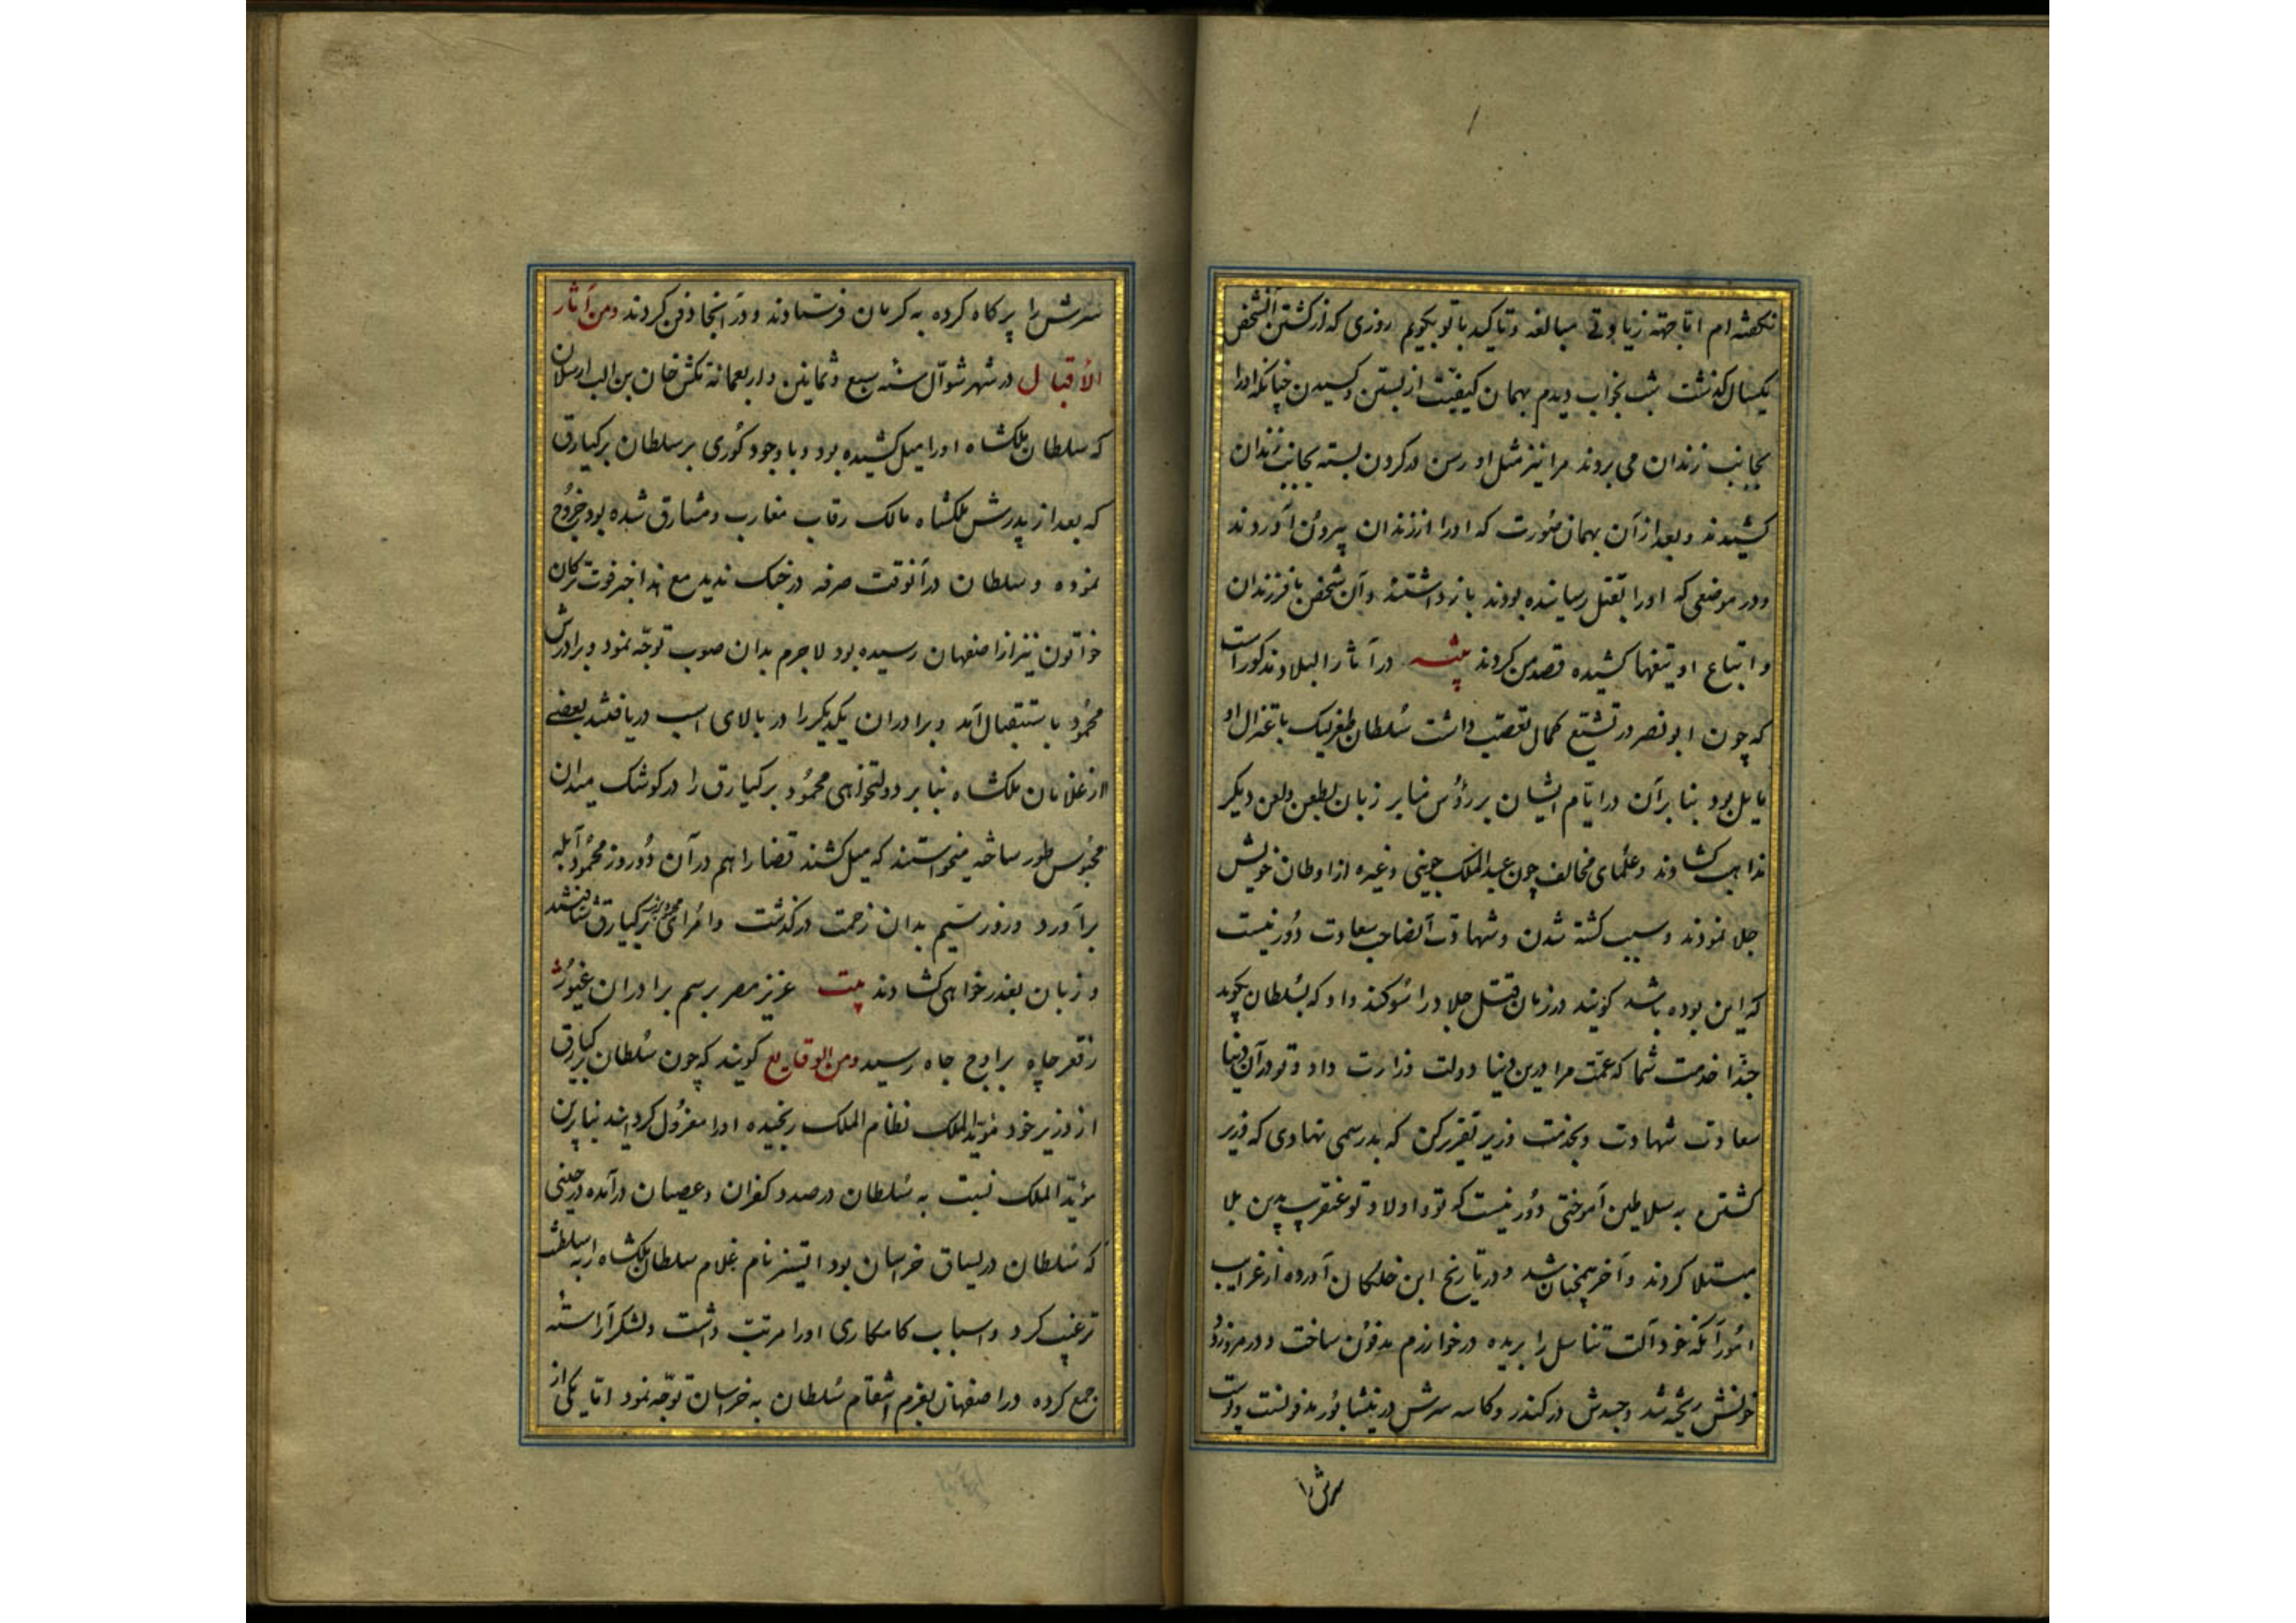 نکفته ام اما جهته زیادتی مبالغه و تاکید با تو بکویم روزی که از کشتن آنشخص
یکسال کذشت شب بخواب دیدم بهمان کیفیت از بستن و کشیدن چنانکه اورا
بجانب زندان می بردند مرا نیز مثل او رسن در کردن بسته بجانب زندان
کشیدند و بعد از آن بهمان صورت که اورا از زندان بیرون آوردند
و در موضعی که اورا بقتل رسانیده بودند باز داشتند و آن شخص با فرزندان
و اتباع او تیغها کشیده قصد من کردند در آثار البلاد مذکور است
که چون ابو نصر در تشیع کمال تعصب داشت سلطان طغرلبک باعتزال او
مایل بود بنا بر آن در ایام ایشان بر رؤس منابر زبان بطعن و لعن دیکر
مذاهب کشادند و علمای مخالف چون عبد الملک جوینی و غیره از اوطان خویش
جلا نمودند و سبب کشته شدن و شهادت آنصاحب سعادت دور نیست
که این بوده باشد کویند در زمان قتل جلاد را سوکند داد که بسلطان بکوید
حبذا خدمت شما که عمت مرا درین دنیا دولت وزارت داد و تو در آن دنیا
سعادت شهادت و بخدمت وزیر تقریر کن که بد رسمی نهادی که وزیر
کشتن به سلاطین آموختی دور نیست که تو و اولاد تو عنقریب بدین بلا
مبتلا کردند و آخر همچنان شد و در تاریخ ابن خلکان آورده از غرایب
امور آنکه خود آلت تناسل را بریده در خوارزم مدفون ساخت و در مرو رود
خونش ریخته شد و جسدش در کندر و کاسه سرش در نیشابور مدفونست و پوست
سرش را
سرش را پر کاه کرده به کرمان فرستادند و در آنجا دفن کردند ومن آثار
الاقبال در شهر شوال سنه سبع وثمانین واربعمائة تکش خان بن الب ارسلان
که سلطان ملکشاه اورا میل کشیده بود و با وجود کوری بر سلطان برکیارق
که بعد از پدرش ملکشاه مالک رقاب مغارب و مشارق شده بود خروج
نموده و سلطان در آنوقت صرفه در جنک ندید مع هذا خبر فوت ترکان
خواتون نیز از اصفهان رسیده بود لاجرم بدان صوب توجه نمود و برادرش
محمود باستقبال آمد و برادران یکدیکر را در بالای اسب دریافتند بعضی
از غلامان ملکشاه بنا بر دولتخواهی محمود برکیارق را در کوشک میدان
محبوس طور ساخته میخواستند که میل کشند قضا را هم در آن دو روز محمود آبله
برآورد و روز سیم بدان زحمت درکذشت و امرای محمود نزد برکیارق شتافتند
و زبان بعذر خواهی کشادند بیت عزیز مصر برسم برادران غیور
ز قعر چاه برآمد باوج جاه رسید ومن الوقایع کویند که چون سلطان برکیارق
از وزیر خود مؤید الملک نظام الملک رنجیده اورا معزول کردانید بنا برین
مؤید الملک نسبت به سلطان در صدد کفران و عصیان درآمده در حینی
که سلطان در یساق خراسان بود اتسز نام غلام سلطان ملکشاه را به سلطنت
ترغیب کرد و اسباب کامکاری اورا مرتب داشت و لشکر آراسته
جمع کرده در اصفهان بعزم انتقام سلطان به خراسان توجه نمود اما یکی از